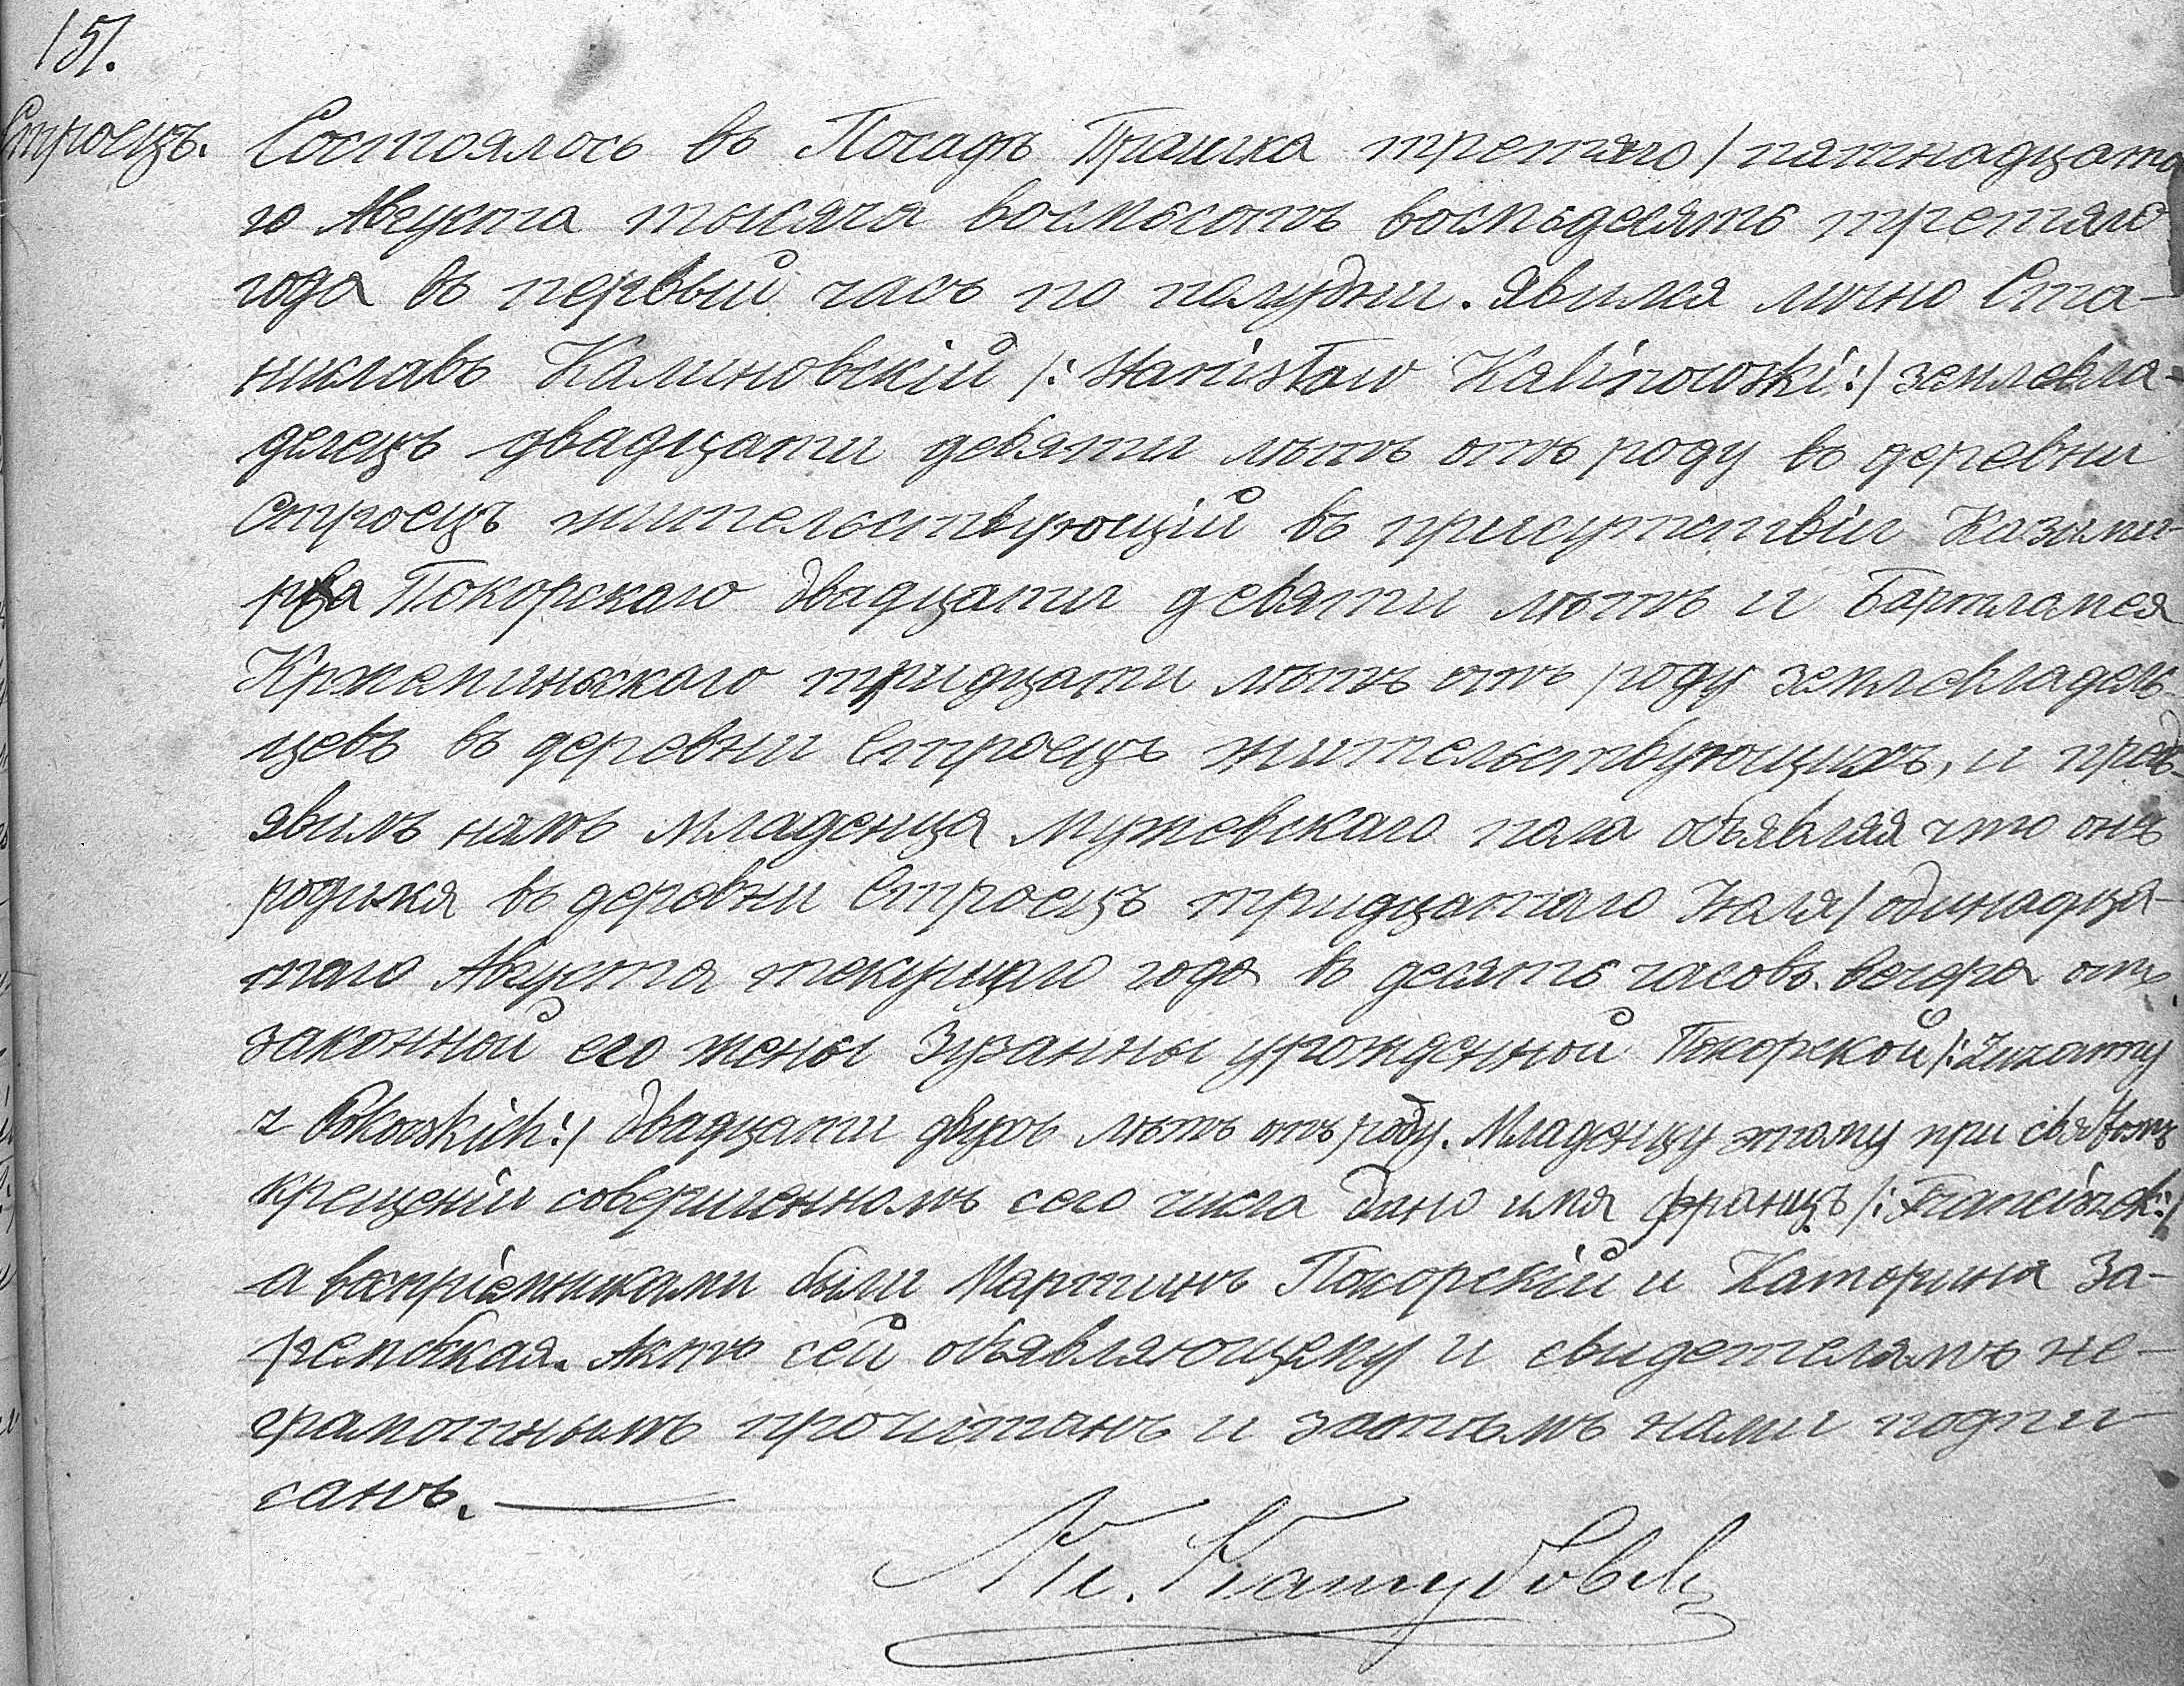 151.
Строецъ.
Состоялось въ Посадѣ Прашка третяго / пятнадцата
го Августа тысяча восмьсотъ восмьдесять третяго
года въ первый часъ по полудни. Явился лично Ста-
ниславъ Калиновскій /: Stanisław Kalinowski :/ землевла-
делецъ двадцати девяти лѣтъ отъ роду въ деревни
Строецъ жительствующій въ присутствіи Казими-
ра Покорскаго двадцати девяти лѣтъ и Бартламея
Кржеминьскаго тридцати лѣтъ отъ роду землевладель-
цевъ въ деревни Строецъ жительствующихъ, и предъ
явилъ намъ младенца мужевскаго пола объявляя что онъ
родился въ деревни Строецъ тридцатаго Іюля / одинадца-
таго Августа текущаго года въ десять часовъ вечера отъ
законной его жены Зузанны урожденной Покорской /: Zuzanny
z Pokorskich :/ двадцати двухъ лѣтъ отъ роду. Младенцу этому при святомъ
крещеніи совершенномъ сего числа дано имя Францъ /: Franciszek :/
а воспріемниками были Мартинъ Покорскій и Каторина За-
рембская. Актъ сей объявляющему и свидетелямъ не-
грамотнымъ прочитанъ и затѣмъ нами подпи
санъ.
Кс.